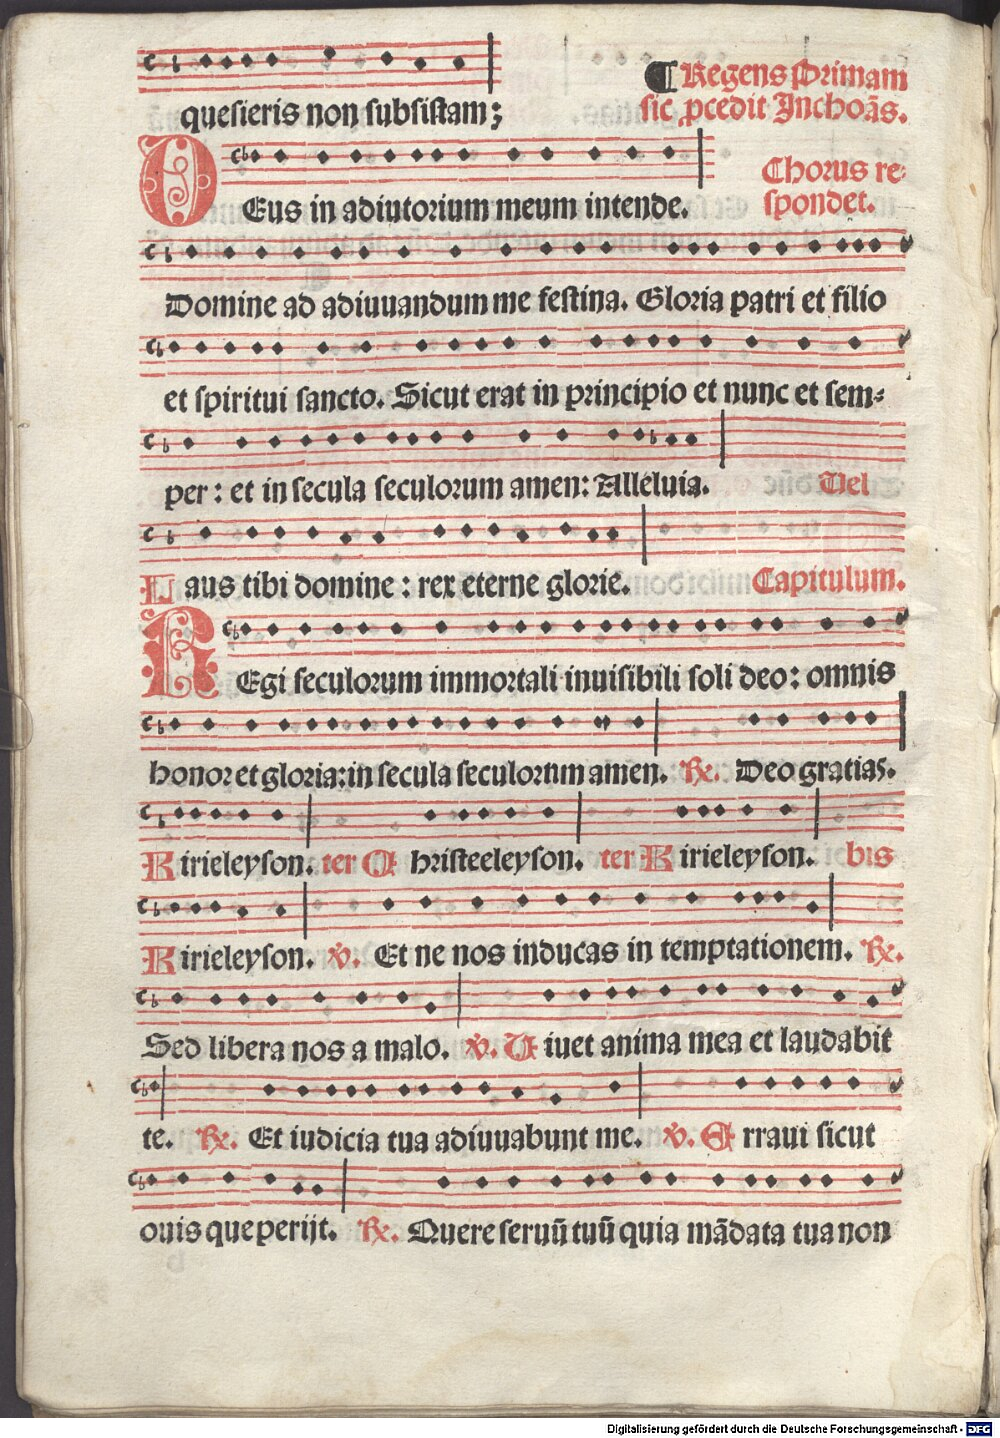 quesieris non subsistam;
¶ Regens Primam
sic ꝓcedit Inchoās.
DEus in adiutorium meum intende.
Chorus re-
spondet.
Domine ad adiuuandum me festina. Gloria patri et filio
et spiritui sancto. Sicut erat in principio et nunc et sem-
per: et in secula seculorum amen: Alleluia. Uel
Laus tibi domine: rex eterne glorie. Capitulum.
REgi seculorum immortali inuisibili soli deo: omnis
honor et gloria: in secula seculorum amen. ℟. Deo gratias.
Kirieleyson. ter Christeeleyson. ter Kirieleyson. bis
Kirieleyson. ℣. Et ne nos inducas in temptationem. ℟.
Sed libera nos a malo. ℣. Uiuet anima mea et laudabit
te. ℟. Et iudicia tua adiuuabunt me. ℣. Erraui sicut
ouis que perijt. ℟. Quere seruū tuū quia mādata tua non
Digitalisierung gefördert durch die Deutsche Forschungsgemeinschaft - DFG